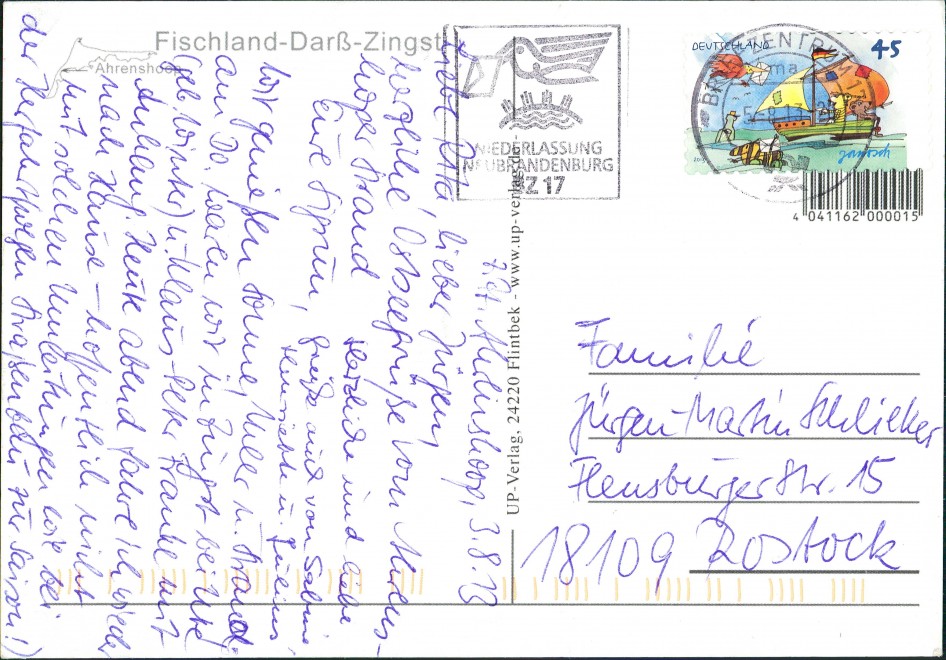 Fischland-Darß-Zingst
Ahrenshoop
z.Zt. Ahrenshoop, 3.8.13
Liebe Uta, lieber Jürgen,
herzliche Ostseegrüße vom Ahrens-
hooper Strand
Herzliche und liebe
Grüße auch von Sabine,
Eure Sigrun,
Wir genießen Sonne, Meer u. Strand.
Am Do. waren wir in Zingst bei Ute
u. Klaus-Peter Franke mit
Anhang. Heute abend fahre ich wieder
nach Hause – hoffentlich nicht
mit solchen Umleitungen wie bei
der Herfahrt (wegen Straßenbau zur Saison!)
UP-Verlag, 24220 Flintbek - www.up-verlag.de
NIEDERLASSUNG
NEUBRANDENBURG
BZ 17
BRIEFZENTRUM 17
DEUTSCHLAND
45
Janosch
4 041162 000015
Familie
Jürgen-Martin Schlieker
Flensburger Str. 15
18109 Rostock